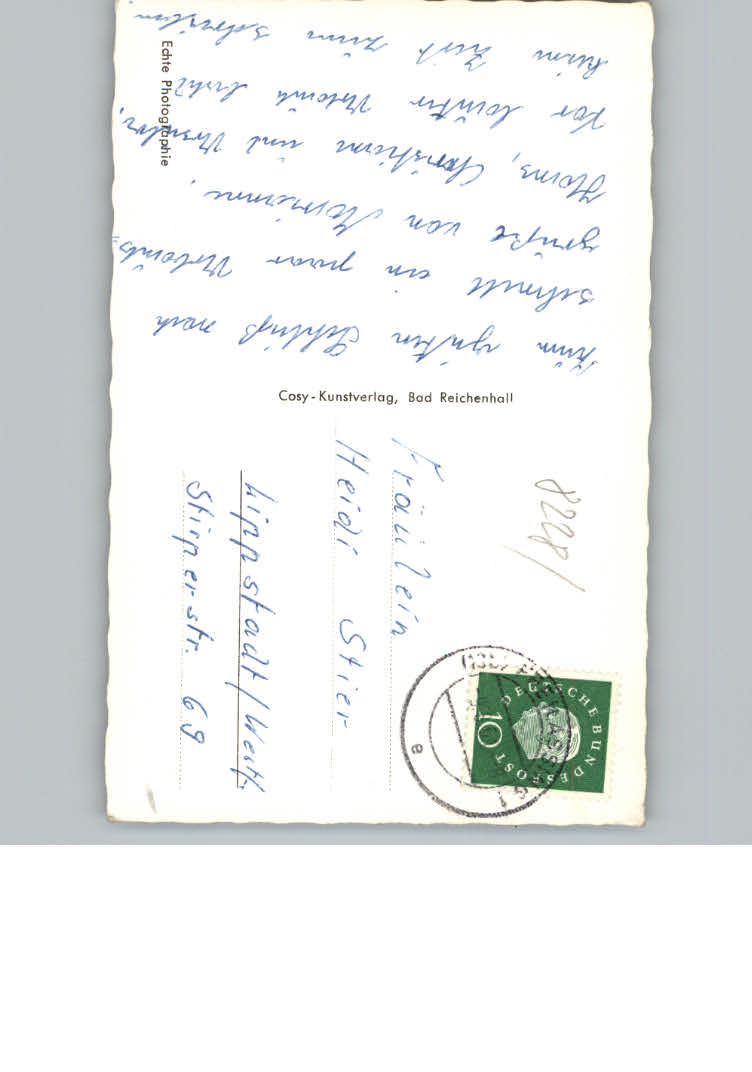 Zum guten Schluß noch
schnell ein paar Urlaubs-
grüße von Marianne,
Hans, Christiane und Ursula,
Vor lauter Urlaub bleibt
keine Zeit zum schreiben
Echte Photographie
Cosy-Kunstverlag, Bad Reichenhall
8228/
Fräulein
Heidi Stier
Lippstadt/Westf.
Stirper-str. 69
DEUTSCHE BUNDESPOST
10
e